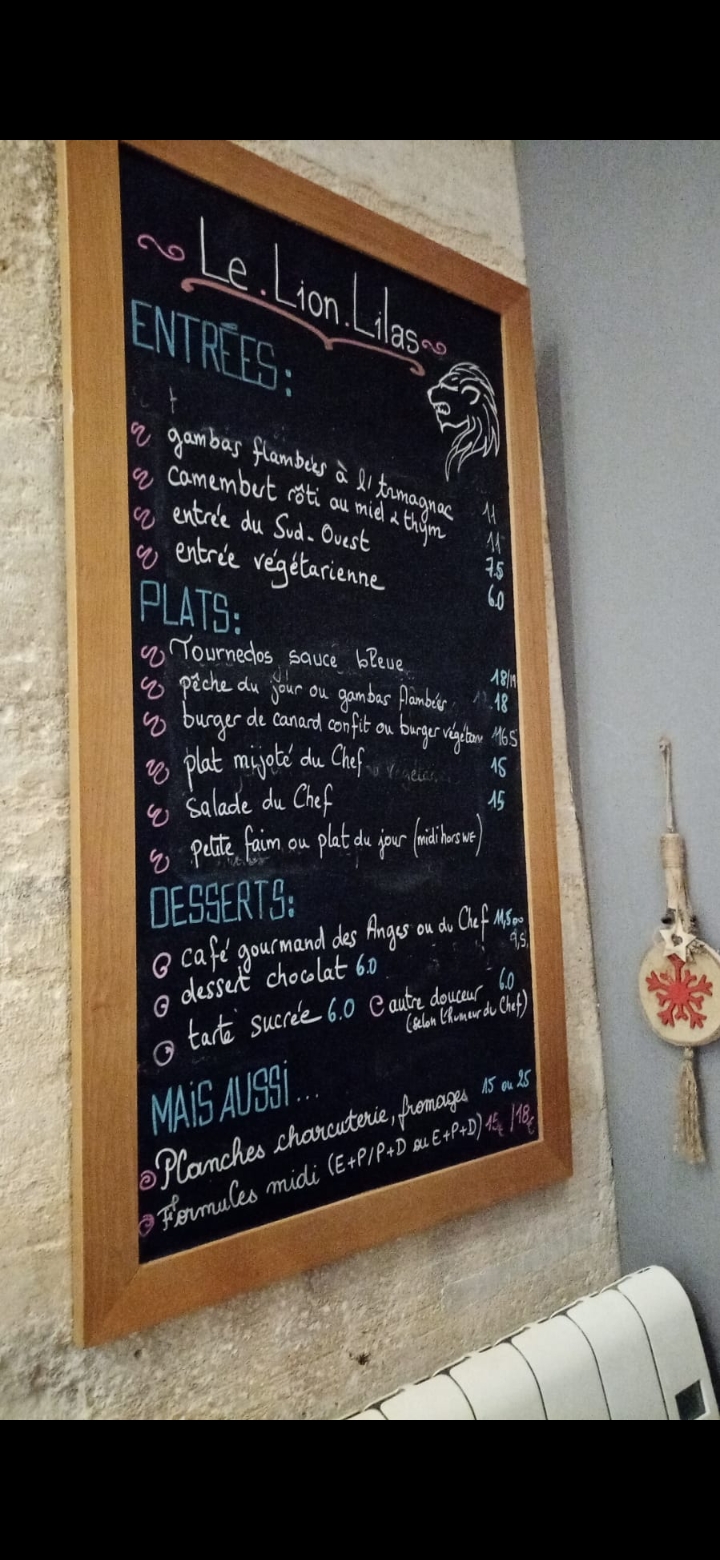 Le.Lion.Lilas
ENTRÉES:
gambas flambées à l'Armagnac 11
camembert rôti au miel & thym 11
entrée du Sud-Ouest 7.5
entrée végétarienne 6.0
PLATS:
Tournedos sauce bleue 18/19
pêche du jour ou gambas flambées 18
burger de canard confit ou burger végétar 16.5
plat mijoté du Chef 15
salade du Chef 15
petite faim ou plat du jour (midi hors WE)
DESSERTS:
café gourmand des Anges ou du Chef 11,5 ou 9,5
dessert chocolat 6.0
tarte sucrée 6.0 autre douceur 6.0
(selon l'humeur du Chef)
MAIS AUSSI...
Planches charcuterie, fromages 15 ou 25
Formules midi (E+P/P+D ou E+P+D) 15€/18€